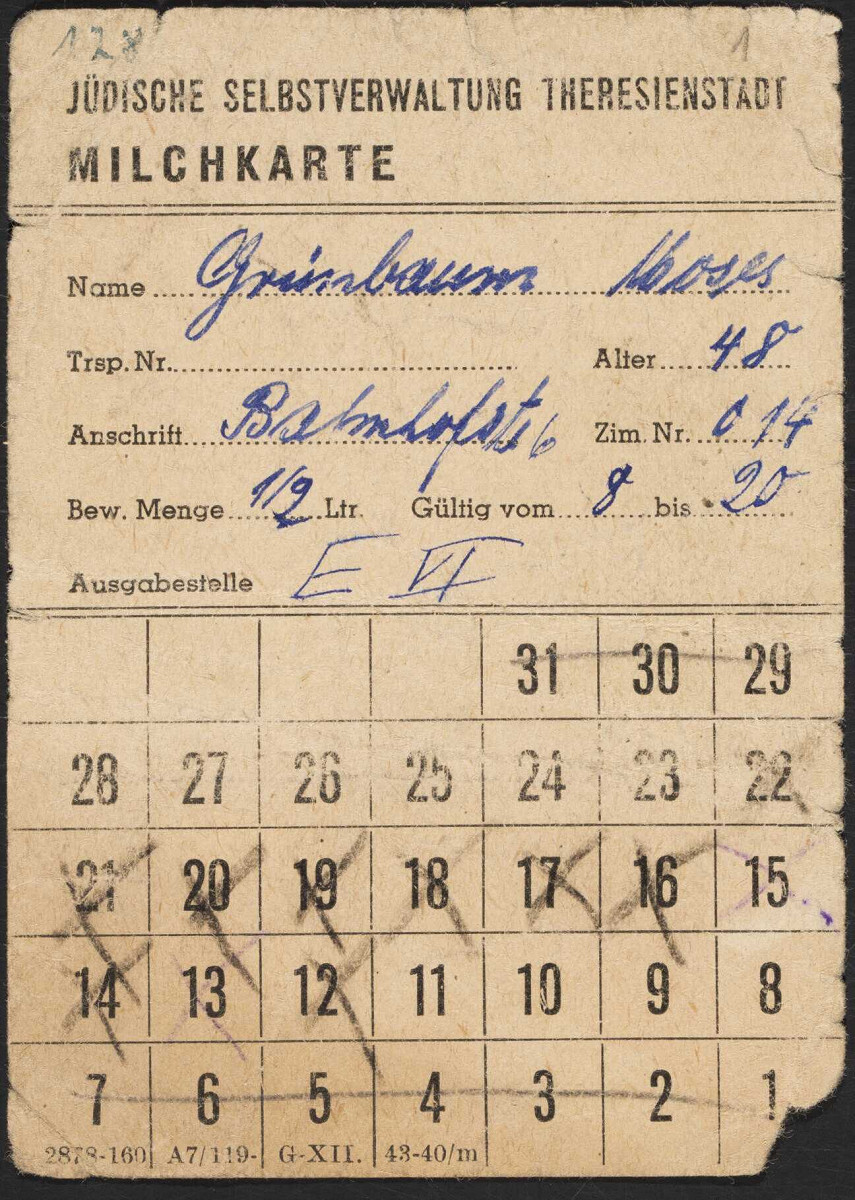 128 1
JÜDISCHE SELBSTVERWALTUNG THERESIENSTADT
MILCHKARTE
Name Grünbaum Moses
Trsp. Nr. Alter 48
Anschrift Bahnhofstr 6 Zim. Nr. 014
Bew. Menge 1/2 Ltr. Gültig vom 8 bis 20
Ausgabestelle E VI
31 30 29
28 27 26 25 24 23 22
21 20 19 18 17 16 15
14 13 12 11 10 9 8
7 6 5 4 3 2 1
2878-160 A7/119- G-XII. 43-40/m